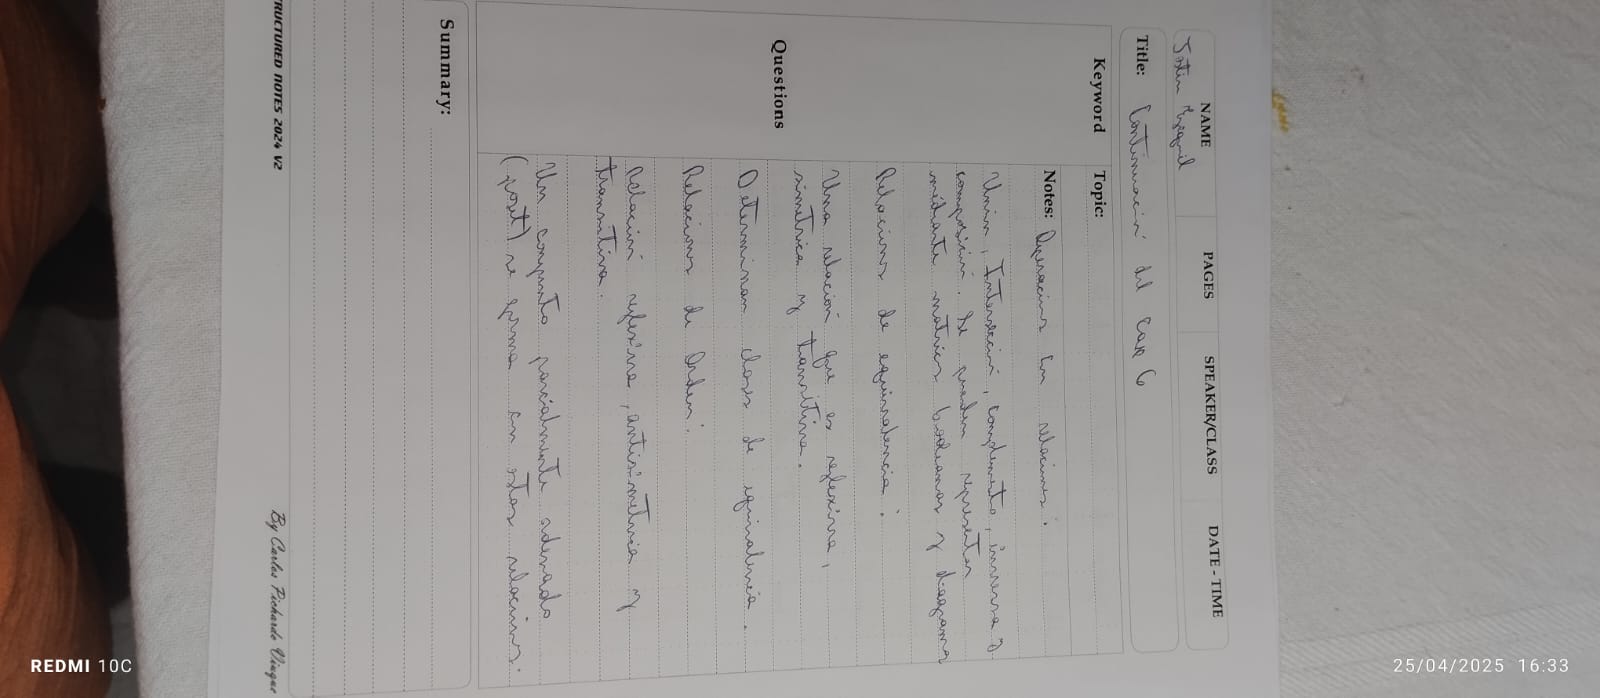 NAME PAGES SPEAKER/CLASS DATE - TIME
Title: Continuación del cap 6
Keyword Topic:
Notes: Operacions en relacions.
Unión, Intersección, complemento, inversa y
composición. Se pueden representar
mediante matrices booleanas y diagramas
Relacions de equivalencia:
Una relación que es reflexiva,
simétrica y transitiva.
Determinan clases de equivalencia.
Relacions de Orden:
Relación reflexiva, antisimétrica y
transitiva.
Un conjunto parcialmente ordenado
(poset) se forma con estas relacions.
Questions
Summary:
STRUCTURED NOTES 2024 V2
By Carlos Pichardo Viuque
REDMI 10C
25/04/2025 16:33